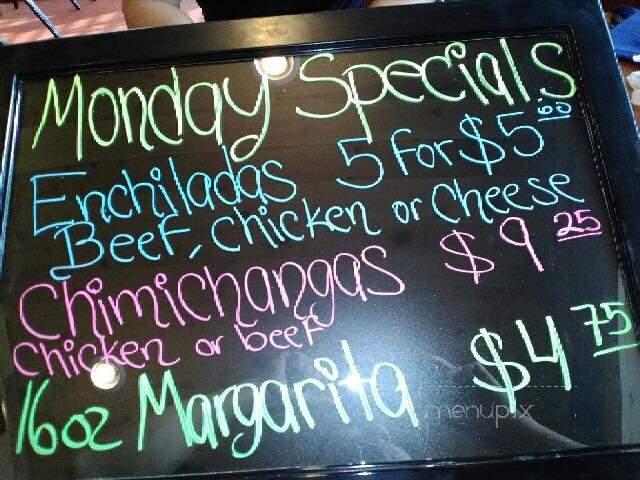 Monday Specials
Enchiladas 5 For $5
Beef, Chicken or Cheese
Chimichangas $9 25
Chicken or beef
16oz Margarita $4 75
menupix